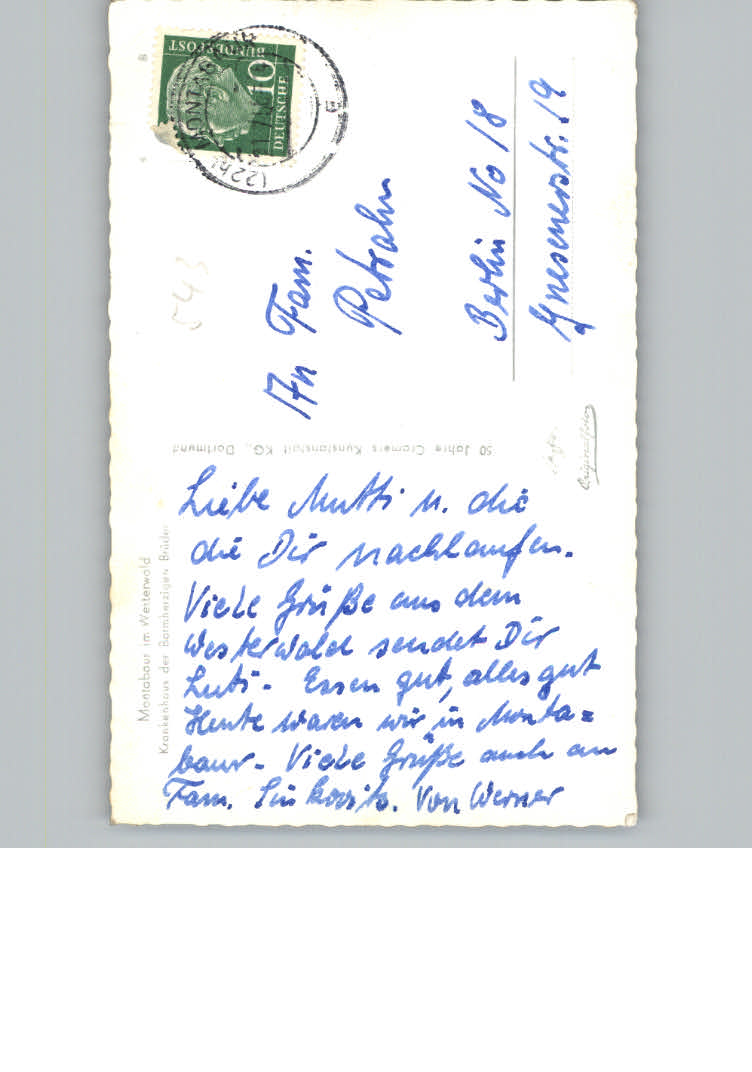 DEUTSCHE
BUNDESPOST
10
(22b) MONTABAUR
a
543
An Fam.
Petrahn
Berlin No 18
Gnesenerstr. 19
50 Jahre Cramers Kunstanstalt KG., Dortmund
Originalfoto
Montabaur im Westerwald
Krankenhaus der Barmherzigen Brüder
Liebe Mutti u. die
die Dir nachlaufen.
Viele Grüße aus dem
Westerwald sendet Dir
Luti - Essen gut, alles gut
Heute waren wir in Monta=
baur - Viele Grüße auch an
Fam. Von Werner